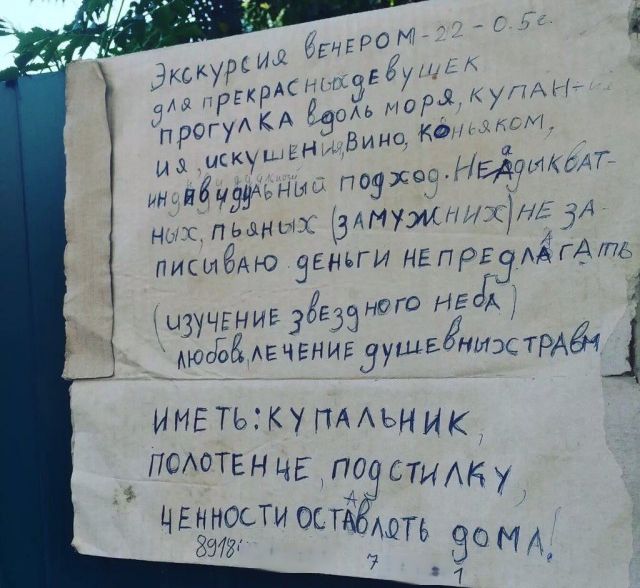 Экскурсия ВЕЧЕРОМ-22-0.5г.
для прЕКРАСныхдЕВушЕК
прогулКА Вдоль моря, купАн-
ия, искушения, Вино, коньяком,
индивидуальный подход. НЕАдыкВАТ-
ных, пьяных (зАМУЖНИХ) НЕ ЗА-
писыВАЮ. дЕНЬГИ НЕ ПРЕдЛАГАТЬ
(изучЕНИЕ зВЕздного НЕбА)
любоВь, лЕЧЕНИЕ душЕВныхстрАВм
ИМЕТЬ: КУПАЛЬНИК,
ПОЛОТЕНЦЕ, подстилку,
ЦЕННОСТИ ОСТАВлять доМА!
8918
7 1